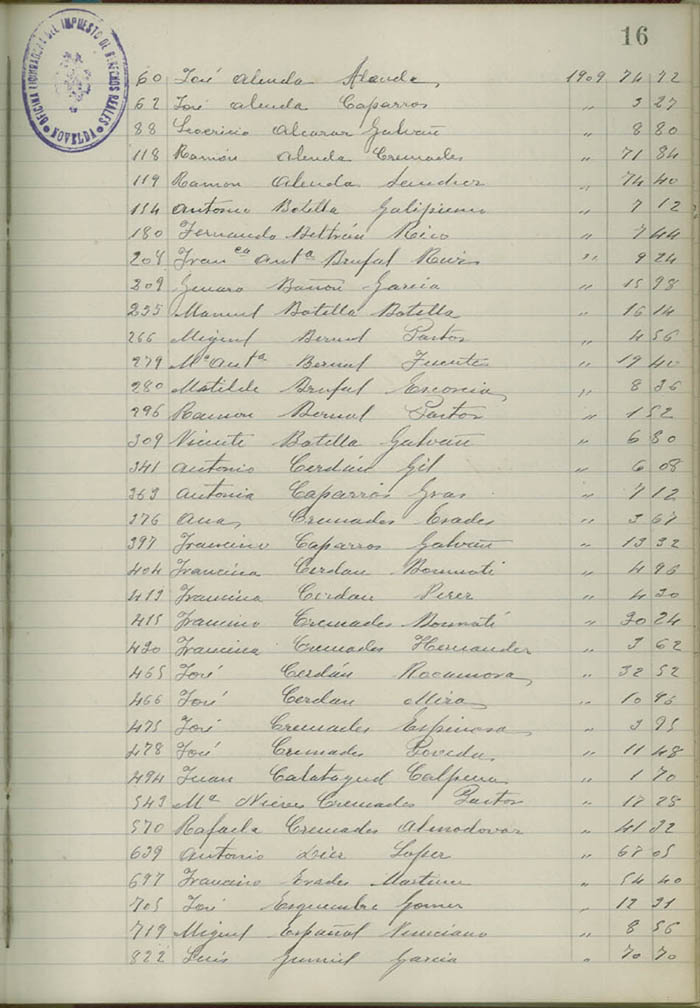 16
OFICINA LIQUIDADORA DEL IMPUESTO DE DERECHOS REALES
NOVELDA
60 José Alenda Alenda 1909 74 72
62 José Alenda Caparros " 3 27
88 Severino Alcaraz Galvañ " 8 80
118 Ramón Alenda Cremades " 71 84
119 Ramon Alenda Sanchez " 74 40
154 Antonio Botella Galipienso " 7 12
180 Fernando Beltrán Rico " 7 44
208 Franca Anta Brufal Ruiz " 9 24
209 Genaro Bañon Garcia " 15 98
235 Manuel Botella Botella " 16 14
266 Miguel Bernal Pastor " 4 56
279 Ma Anta Bernal Fuentes " 19 40
280 Matilde Brufal Escorcia " 8 36
296 Ramon Bernal Pastor " 1 52
309 Vicente Botella Galvañ " 6 80
341 Antonio Cerdán Gil " 6 08
363 Antonia Caparrós Gras " 7 12
376 Ana Cremades Erades " 3 67
397 Francisco Caparros Galvañ " 13 32
404 Francisca Cerdan Bonmati " 4 96
413 Francisca Cerdan Perez " 4 30
415 Francisco Cremades Bonmatí " 30 24
430 Francisca Cremades Hernandez " 3 62
465 José Cerdán Rocamora " 32 52
466 José Cerdan Mira " 10 96
475 José Cremades Espinosa " 3 95
478 José Cremades Poveda " 11 48
494 Juan Calatayud Calpena " 1 70
543 Ma Nieves Cremades Pastor " 17 25
570 Rafaela Cremades Almodovar " 41 32
639 Antonio Diez Lopez " 67 05
697 Francisco Erades Martinez " 54 40
705 José Esquembre Gomez " 12 31
719 Miguel Español Penciano " 8 56
822 Luis Gumiel Garcia " 70 70